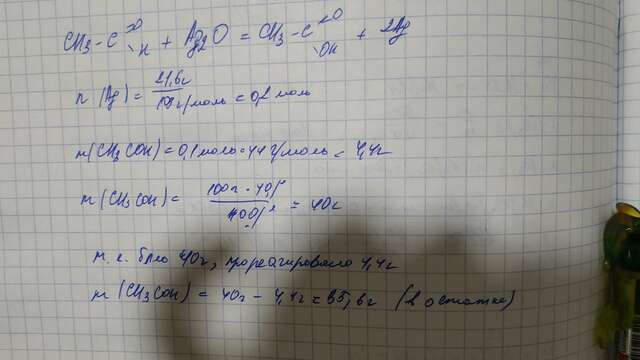 CH3-C=O-H + Ag2O = CH3-C=O-OH + 2Ag
n(Ag) = 21,6г / 108г/моль = 0,2 моль
m(CH3COH) = 0,1 моль · 44 г/моль = 4,4г
m(CH3COH) = 100г · 40% / 100% = 40г
т.е. было 40г, прореагировало 4,4г
m(CH3COH) = 40г - 4,4г = 35,6г (в остатке)